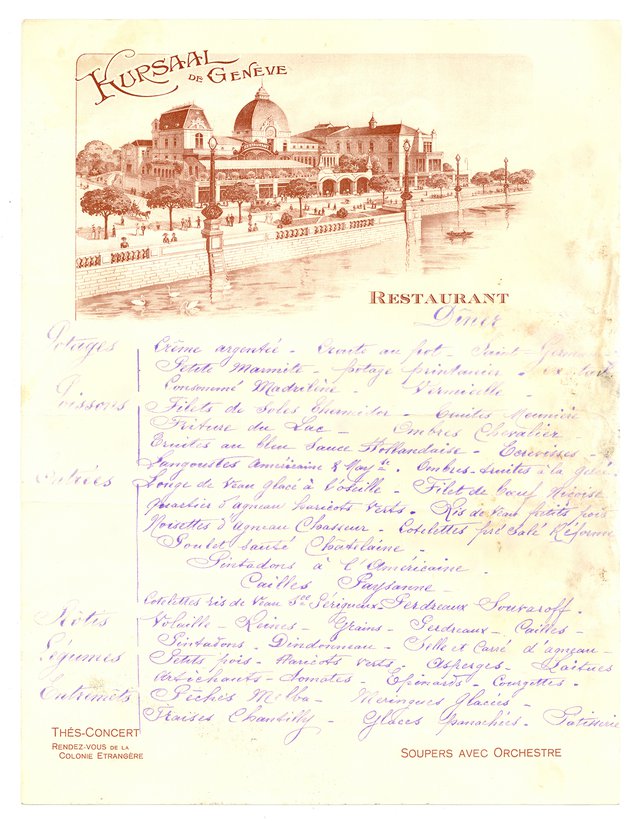 KURSAAL
DE GENÈVE
RESTAURANT
Dîner
Potages
Crême argentée - Croute au pot - Saint-Germain
Petite Marmite - potage printanier -
Consommé Madrilène - Vermicelle -
Poissons
Filets de Soles thermidor - Truites Meunière
Friture du Lac - Ombres Chevalier -
Truites au bleu Sauce Hollandaise - Ecrevisses -
Langoustes Américaine & May se - Ombres-truites à la gelée
Entrées
Longe de Veau glacé à l'oseille - Filet de boeuf Niçoise
Quartier d'agneau haricots verts - Ris de Veau petits pois
Noisettes d'agneau Chasseur - Cotelettes pré Salé Réforme
Poulet Sauté Châtelaine -
Pintadons à l'Américaine -
Cailles Paysanne -
Cotelettes ris de Veau Sce Périgueux Perdreaux Souvaroff -
Rôtis
Volaille - Reines - Grains - Perdreaux - Cailles -
Pintadons - Dindonneau - Selle et Carré d'agneau -
Légumes
Petits pois - Haricots Verts - Asperges - Laitues
Artichauts - Tomates - Epinards - Courgettes -
Entremets
Pêches Melba - Meringues Glacées -
Fraises Chantilly - Glaces panachées - Patisserie
THÉS-CONCERT
RENDEZ-VOUS DE LA
COLONIE ETRANGÈRE
SOUPERS AVEC ORCHESTRE